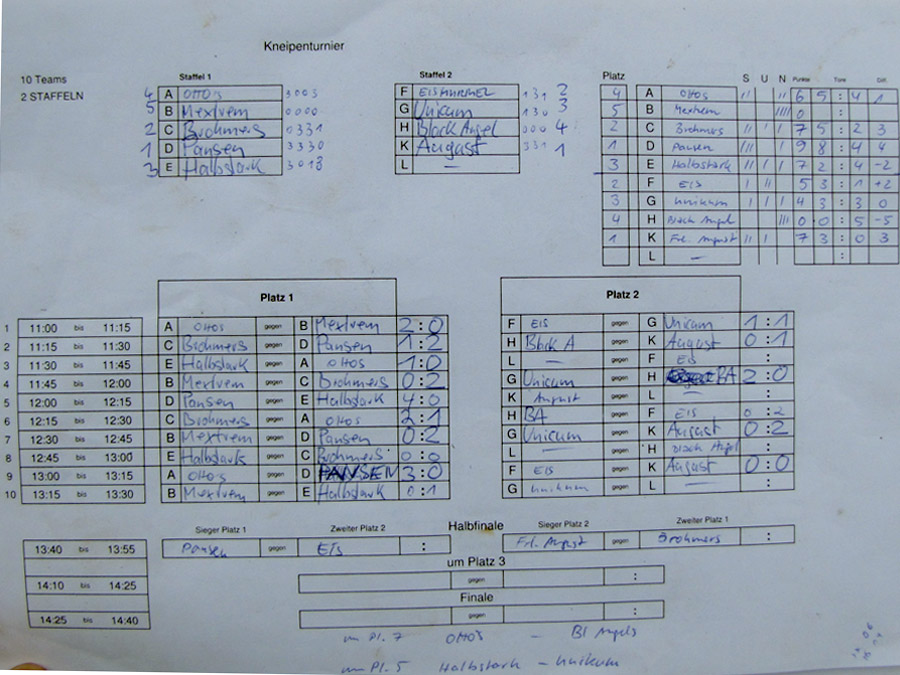 Kneipenturnier
10 Teams
2 STAFFELN
Staffel 1
4 A OTTOS 3003
5 B Mextrem 0000
2 C Brohmers 0331
1 D Pansen 3330
3 E Halbstark 3013
Staffel 2
F EISHIMMEL 131 2
G Unicum 130 3
H Black Angel 000 4
K August 331 1
L —
Platz S U N Punkte Tore Diff.
4 A OTTOS II II 6 5 : 4 1
5 B Mextrem IIII 0 :
2 C Brohmers II I I 7 5 : 2 3
1 D Pansen III I 9 8 : 4 4
3 E Halbstark II I I 7 2 : 4 -2
2 F EIS I II 5 3 : 1 +2
3 G Unikum I I I 4 3 : 3 0
4 H Black Angel III 0 0 : 5 -5
1 K Frl. August II I 7 3 : 0 3
L — :
Platz 1
1 11:00 bis 11:15 A OTTOS gegen B Mextrem 2:0
2 11:15 bis 11:30 C Brohmers gegen D Pansen 1:2
3 11:30 bis 11:45 E Halbstark gegen A OTTOS 1:0
4 11:45 bis 12:00 B Mextrem gegen C Brohmers 0:2
5 12:00 bis 12:15 D Pansen gegen E Halbstark 4:0
6 12:15 bis 12:30 C Brohmers gegen A OTTOS 2:1
7 12:30 bis 12:45 B Mextrem gegen D Pansen 0:2
8 12:45 bis 13:00 E Halbstark gegen C Brohmers 0:0
9 13:00 bis 13:15 A OTTOS gegen D PANSEN 3:0
10 13:15 bis 13:30 B Mextrem gegen E Halbstark 0:1
Platz 2
F EIS gegen G Unicum 1:1
H Black A gegen K August 0:1
L — gegen F EIS :
G Unicum gegen H BA 2:0
K August gegen L — :
H BA gegen F EIS 0:2
G Unicum gegen K August 0:2
L — gegen H Black Angel :
F EIS gegen K August 0:0
G Unikum gegen L — :
Halbfinale
Sieger Platz 1 Zweiter Platz 2 Sieger Platz 2 Zweiter Platz 1
13:40 bis 13:55 Pansen gegen EIS : Frl. August gegen Brohmers :
um Platz 3
14:10 bis 14:25 gegen :
Finale
14:25 bis 14:40 gegen :
um Pl. 7 OTTOS — Bl Angels
um Pl. 5 Halbstark — Unikum